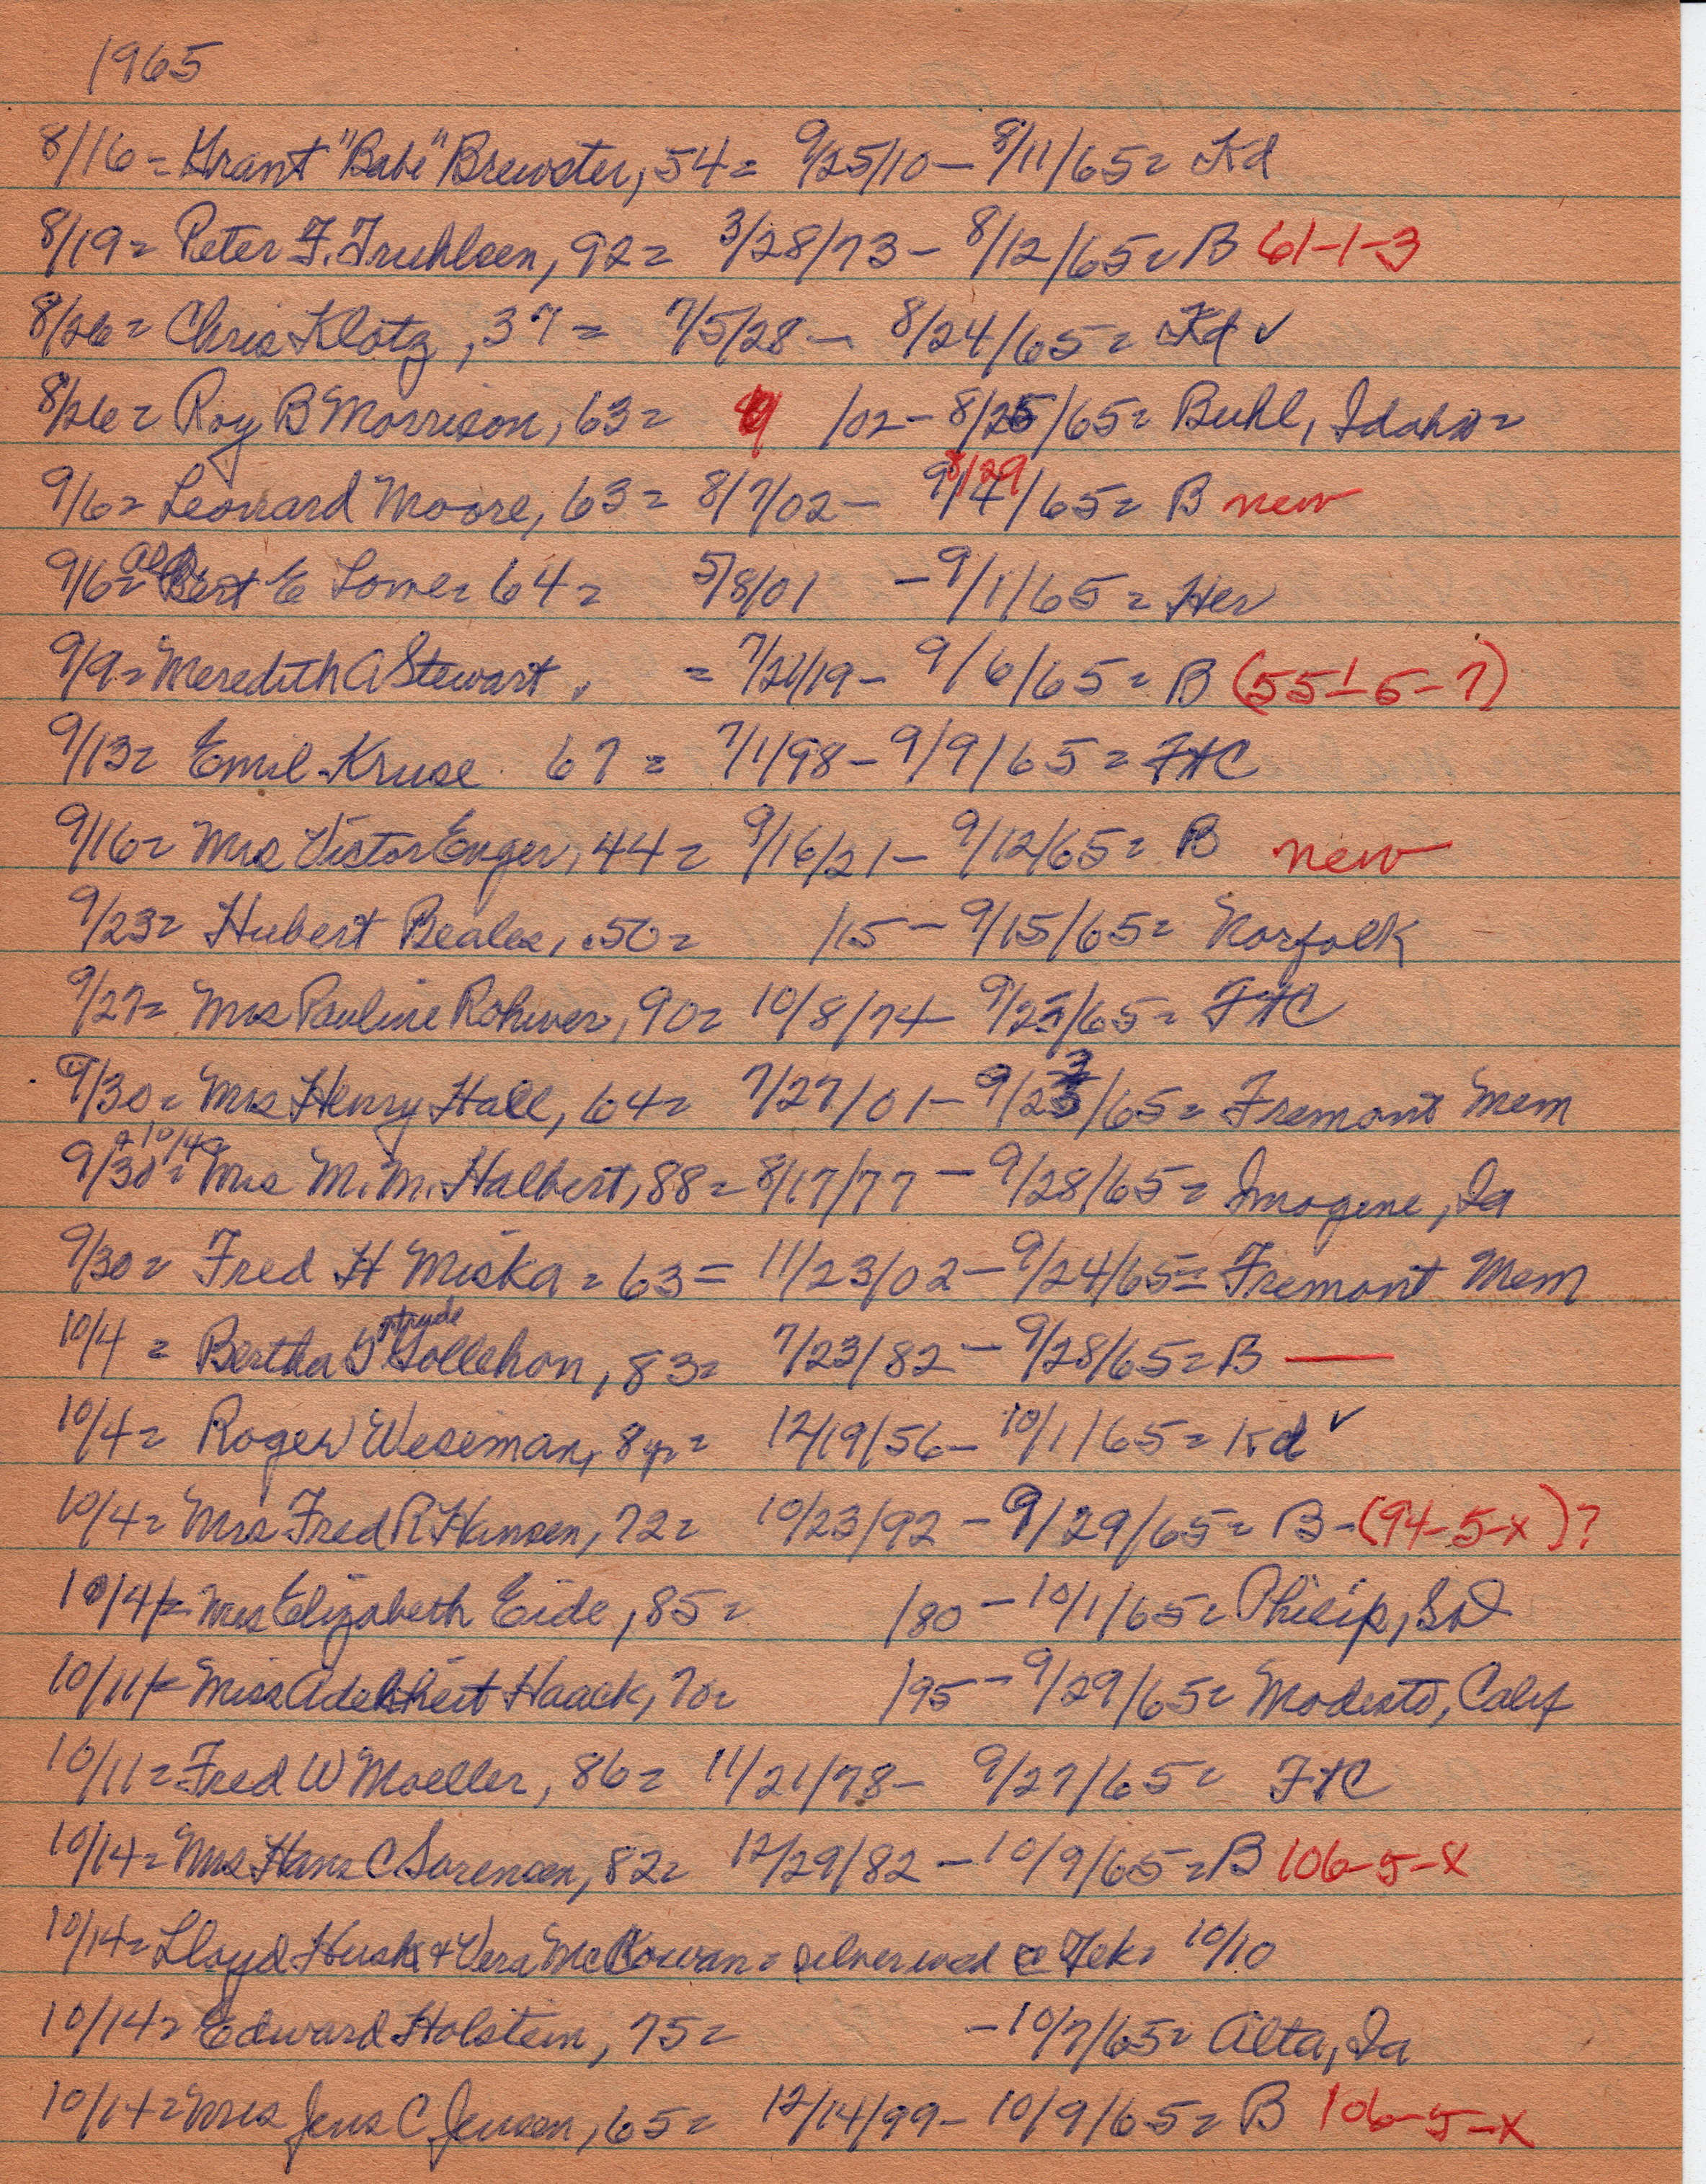 1965
8/16 = Grant "Babe" Brewster, 54 = 9/25/10 – 8/11/65 = Kd
8/19 = Peter F. Fruhlsen, 92 = 3/28/73 – 8/12/65 = B 61-1-3
8/26 = Chris Klotz, 37 = 7/5/28 – 8/24/65 = Kd ✓
8/26 = Roy B Morrison, 63 = /02 – 8/25/65 = Buhl, Idaho =
9/6 = Leonard Moore, 63 = 8/7/02 – 9/4/65 = B new
8/29
9/6 = Bert E Lowe = 64 = 5/8/01 – 9/1/65 = Her
9/9 = Meredith A Stewart, = 7/21/19 – 9/6/65 = B (55-5-7)
9/13 = Emil Kruse 67 = 7/1/98 – 9/9/65 = FHC
9/16 = Mrs Victor Enger, 44 = 9/16/21 – 9/12/65 = B new
9/23 = Hubert Beales, 50 = /15 – 9/15/65 = Norfolk
9/27 = Mrs Pauline Rohwer, 90 = 10/8/74 – 9/25/65 = FHC
9/30 = Mrs Henry Hall, 64 = 7/27/01 – 9/23/65 = Fremont Mem
9/30 + 10/4 = Mrs M. M. Halbert, 88 = 8/17/77 – 9/28/65 = Imogene, Ia
9/30 = Fred H Miska = 63 = 11/23/02 – 9/24/65 = Fremont Mem
10/4 = Bertha Gertrude Gollehon, 83 = 7/23/82 – 9/28/65 = B —
10/4 = Roger Weseman, 8 yr = 12/19/56 – 10/1/65 = Kd ✓
10/4 = Mrs Fred R Hansen, 72 = 10/23/92 – 9/29/65 = B – (94-5-x)?
10/4 = Mrs Elizabeth Eide, 85 = /80 – 10/1/65 = Philip, SD
10/11 = Miss Adelheit Haack, 70 = /95 – 9/29/65 = Modesto, Calif
10/11 = Fred W Moeller, 86 = 11/21/78 – 9/27/65 = FHC
10/14 = Mrs Hans C Sorensen, 82 = 12/29/82 – 10/9/65 = B 106-5-x
10/14 = Lloyd Husk & Vera McKowan = silver wed @ Tek = 10/10
10/14 = Edward Holstein, 75 = – 10/7/65 = Alta, Ia
10/14 = Mrs Jens C Jensen, 65 = 12/14/99 – 10/9/65 = B 106-5-x